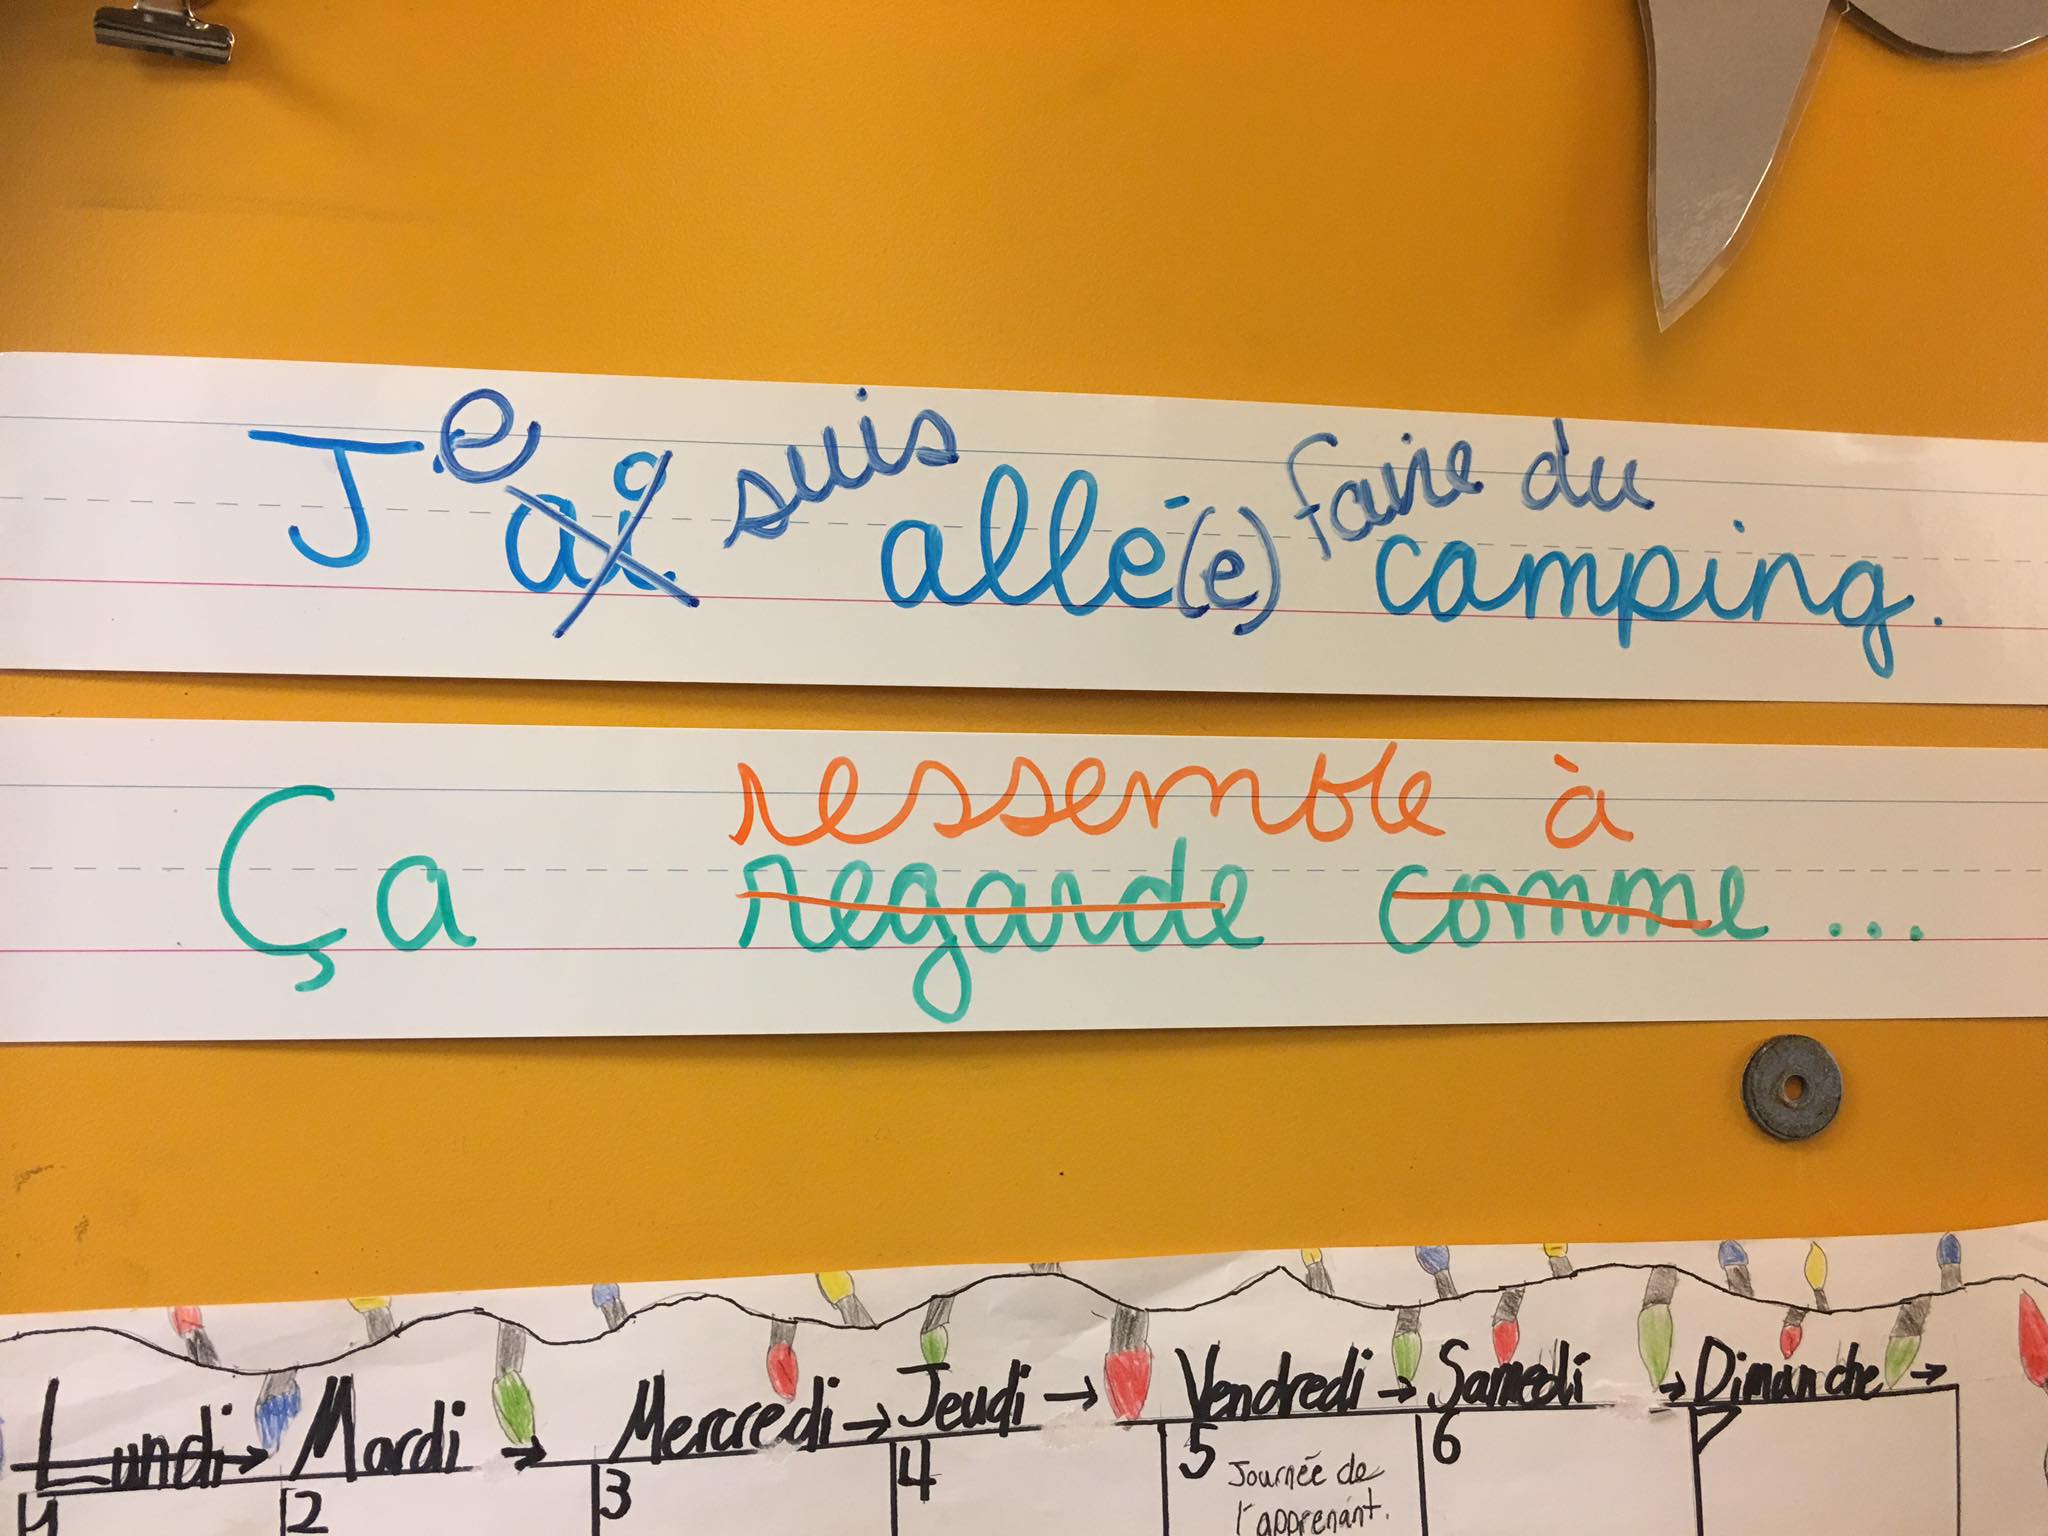 Je ai suis allé(e) faire du camping.
ressemble à
Ça regarde comme ...
Lundi → Mardi → Mercredi → Jeudi → Vendredi → Samedi → Dimanche →
1 2 3 4 5 6 7
Journée de
l'apprenant.